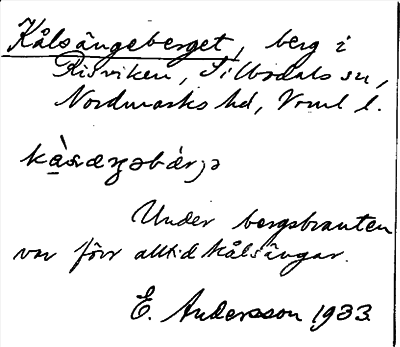 Kålsängeberget, berg i
Risviken, Silbodals sn,
Nordmarks hd, Vrml l.
Under bergsbranten
var förr alltid kålsängar.
E. Andersson 1933.